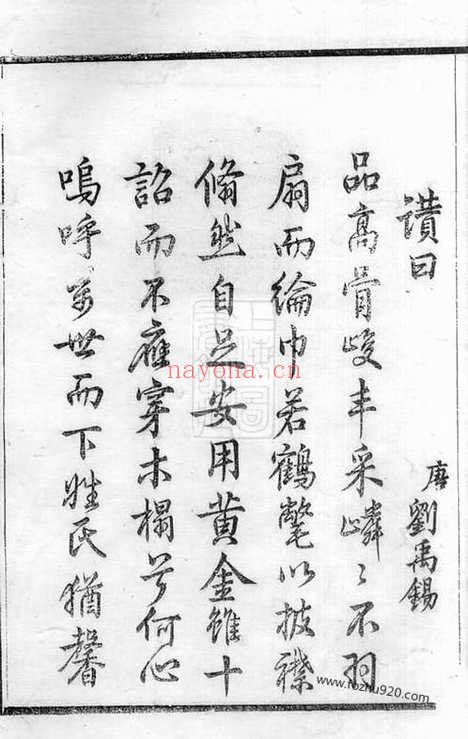 讚曰
唐 劉禹錫
品高骨峻丰采嶙〻不羽
扇而綸巾若鶴氅以披襟
翛然自足安用黄金雖十
詔而不應穿木榻兮何心
嗚呼萬世而下姓氏猶馨
nayona.cn
www.fozhu920.com